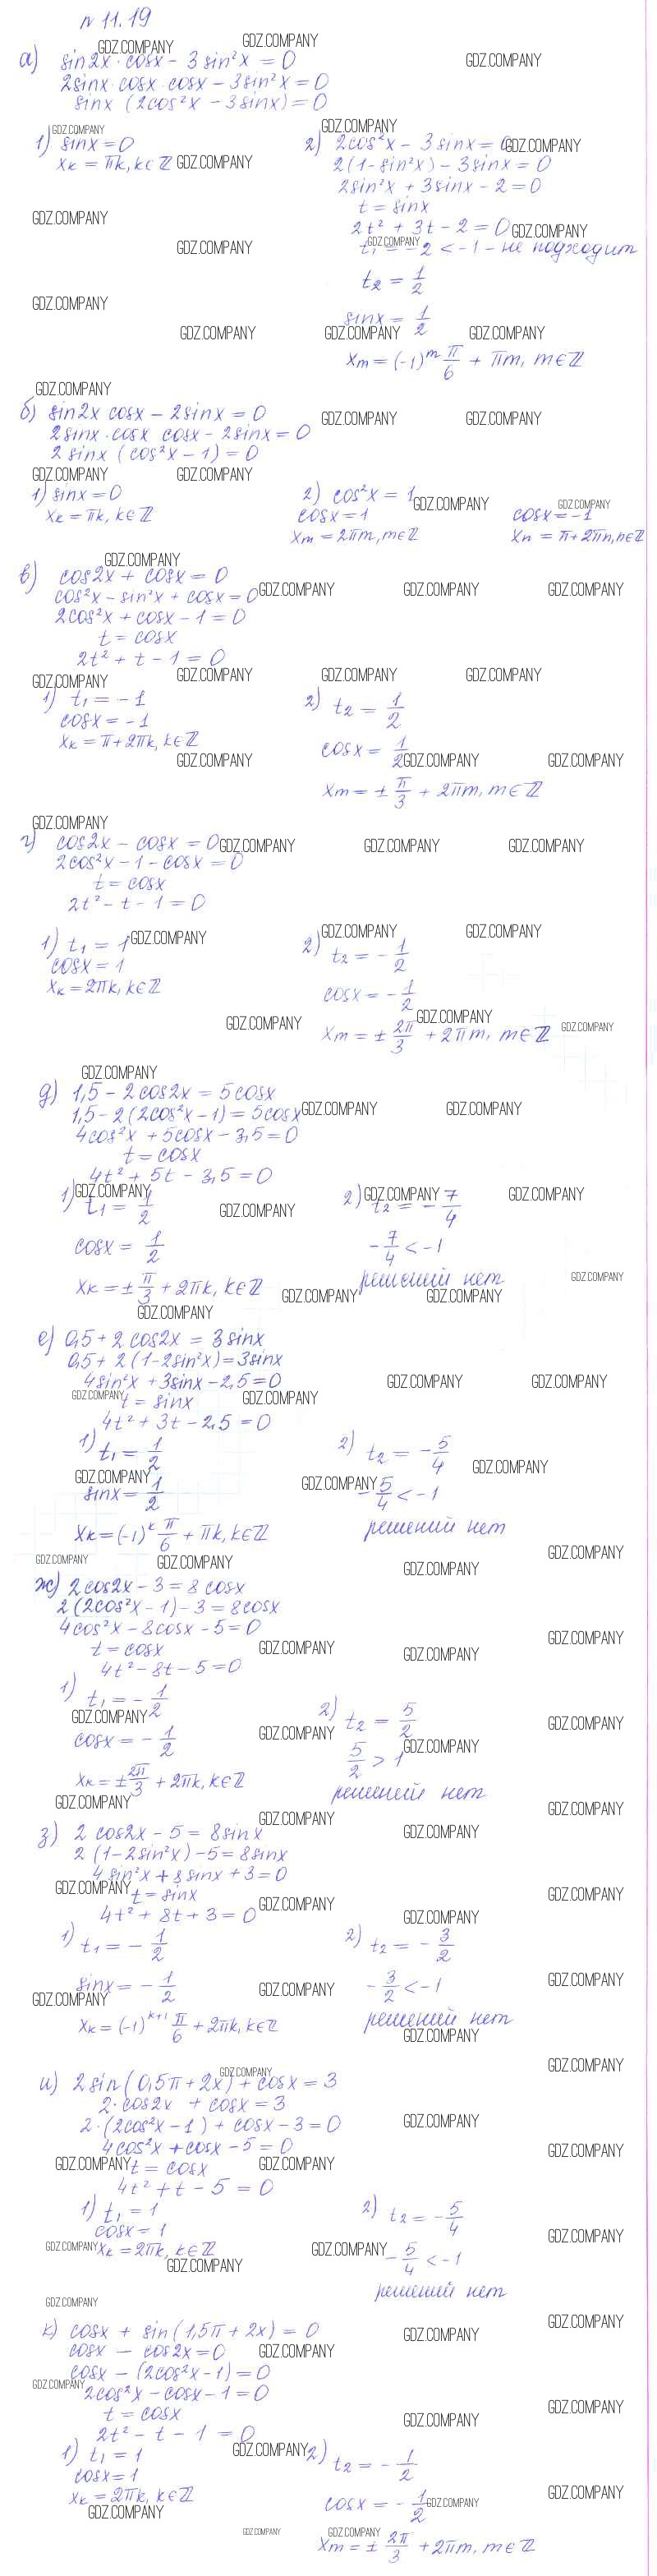 № 11.19
а) sin2x · cosx − 3sin²x = 0
2sinx · cosx · cosx − 3sin²x = 0
sinx (2cos²x − 3sinx) = 0
1) sinx = 0
xₖ = πk, k∈ℤ
2) 2cos²x − 3sinx = 0
2(1−sin²x) − 3sinx = 0
2sin²x + 3sinx − 2 = 0
t = sinx
2t² + 3t − 2 = 0
t₁ = −2 < −1 − не подходит
t₂ = 1/2
sinx = 1/2
xₘ = (−1)ᵐ π/6 + πm, m∈ℤ
б) sin2x cosx − 2sinx = 0
2sinx · cosx cosx − 2sinx = 0
2sinx (cos²x − 1) = 0
1) sinx = 0
xₖ = πk, k∈ℤ
2) cos²x = 1
cosx = 1
xₘ = 2πm, m∈ℤ
cosx = −1
xₙ = π+2πn, n∈ℤ
в) cos2x + cosx = 0
cos²x − sin²x + cosx = 0
2cos²x + cosx − 1 = 0
t = cosx
2t² + t − 1 = 0
1) t₁ = −1
cosx = −1
xₖ = π+2πk, k∈ℤ
2) t₂ = 1/2
cosx = 1/2
xₘ = ± π/3 + 2πm, m∈ℤ
г) cos2x − cosx = 0
2cos²x − 1 − cosx = 0
t = cosx
2t² − t − 1 = 0
1) t₁ = 1
cosx = 1
xₖ = 2πk, k∈ℤ
2) t₂ = −1/2
cosx = −1/2
xₘ = ± 2π/3 + 2πm, m∈ℤ
д) 1,5 − 2cos2x = 5cosx
1,5 − 2(2cos²x − 1) = 5cosx
4cos²x + 5cosx − 3,5 = 0
t = cosx
4t² + 5t − 3,5 = 0
1) t₁ = 1/2
cosx = 1/2
xₖ = ± π/3 + 2πk, k∈ℤ
2) t₂ = −7/4
−7/4 < −1
решений нет
е) 0,5 + 2cos2x = 3sinx
0,5 + 2(1−2sin²x) = 3sinx
4sin²x + 3sinx − 2,5 = 0
t = sinx
4t² + 3t − 2,5 = 0
1) t₁ = 1/2
sinx = 1/2
xₖ = (−1)ᵏ π/6 + πk, k∈ℤ
2) t₂ = −5/4
−5/4 < −1
решений нет
ж) 2cos2x − 3 = 8cosx
2(2cos²x − 1) − 3 = 8cosx
4cos²x − 8cosx − 5 = 0
t = cosx
4t² − 8t − 5 = 0
1) t₁ = −1/2
cosx = −1/2
xₖ = ± 2π/3 + 2πk, k∈ℤ
2) t₂ = 5/2
5/2 > 1
решений нет
з) 2cos2x − 5 = 8sinx
2(1−2sin²x) − 5 = 8sinx
4sin²x + 8sinx + 3 = 0
t = sinx
4t² + 8t + 3 = 0
1) t₁ = −1/2
sinx = −1/2
xₖ = (−1)ᵏ⁺¹ π/6 + 2πk, k∈ℤ
2) t₂ = −3/2
−3/2 < −1
решений нет
и) 2sin(0,5π + 2x) + cosx = 3
2·cos2x + cosx = 3
2·(2cos²x − 1) + cosx − 3 = 0
4cos²x + cosx − 5 = 0
t = cosx
4t² + t − 5 = 0
1) t₁ = 1
cosx = 1
xₖ = 2πk, k∈ℤ
2) t₂ = −5/4
−5/4 < −1
решений нет
к) cosx + sin(1,5π + 2x) = 0
cosx − cos2x = 0
cosx − (2cos²x − 1) = 0
2cos²x − cosx − 1 = 0
t = cosx
2t² − t − 1 = 0
1) t₁ = 1
cosx = 1
xₖ = 2πk, k∈ℤ
2) t₂ = −1/2
cosx = −1/2
xₘ = ± 2π/3 + 2πm, m∈ℤ
GDZ.COMPANY